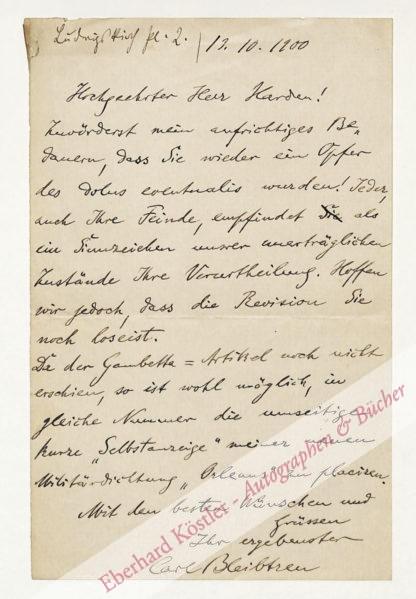 Ludwigkirchpl. 2. / 12. 10. 1900
Hochgeehrter Herr Harden!
Zuvörderst mein aufrichtiges Be„
dauern, dass Sie wieder ein Opfer
des dolus eventualis wurden! Jeder,
auch Ihre Feinde, empfindet als
ein Sinnzeichen unsrer unerträglichen
Zustände Ihre Verurtheilung. Hoffen
wir jedoch, dass die Revision Sie
noch loseist.
Da der Gambetta = Artikel noch nicht
erschien, so ist wohl möglich, in
gleiche Nummer die umseitige
kurze „Selbstanzeige" meiner neuen
Militärdichtung „Orleans" zu placiren.
Mit den besten Wünschen und
Grüssen
Ihr ergebenster
Carl Bleibtreu
Eberhard Köstler - Autographen & Bücher